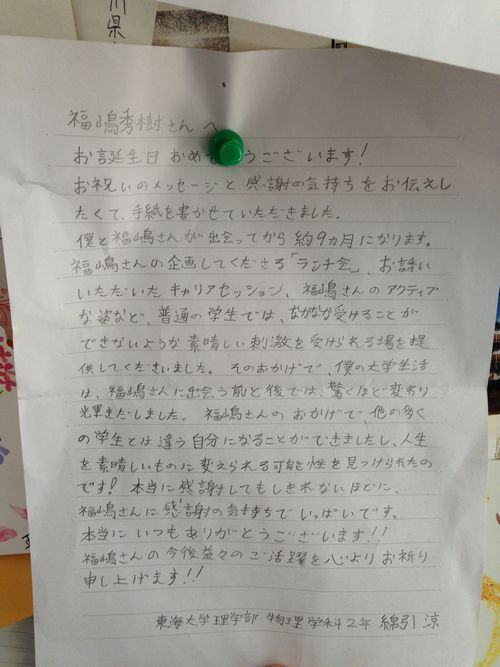 川県
福嶋秀樹さんへ
お誕生日おめでとうございます！
お祝いのメッセージと感謝の気持ちをお伝えし
たくて、手紙を書かせていただきました。
僕と福嶋さんが出会ってから約9ヵ月になります。
福嶋さんの企画してくださる「ランチ会」、お誘い
いただいたキャリアセッション、福嶋さんのアクティブ
な姿など、普通の学生では、なかなか受けることが
できないような素晴しい刺激を受けられる場を提
供してくださいました。そのおかげで、僕の大学生活
は、福嶋さんに出会う前と後では、驚くほど変わり
輝きだしました。福嶋さんのおかげで、他の多く
の学生とは違う自分になることができましたし、人生
を素晴しいものに変えられる可能性を見つけられたの
です！本当に感謝してもしきれないほどに、
福嶋さんに感謝の気持ちでいっぱいです。
本当にいつもありがとうございます!!
福嶋さんの今後益々のご活躍を心よりお祈り
申し上げます!!
東海大学理学部 物理学科2年 綿引 涼